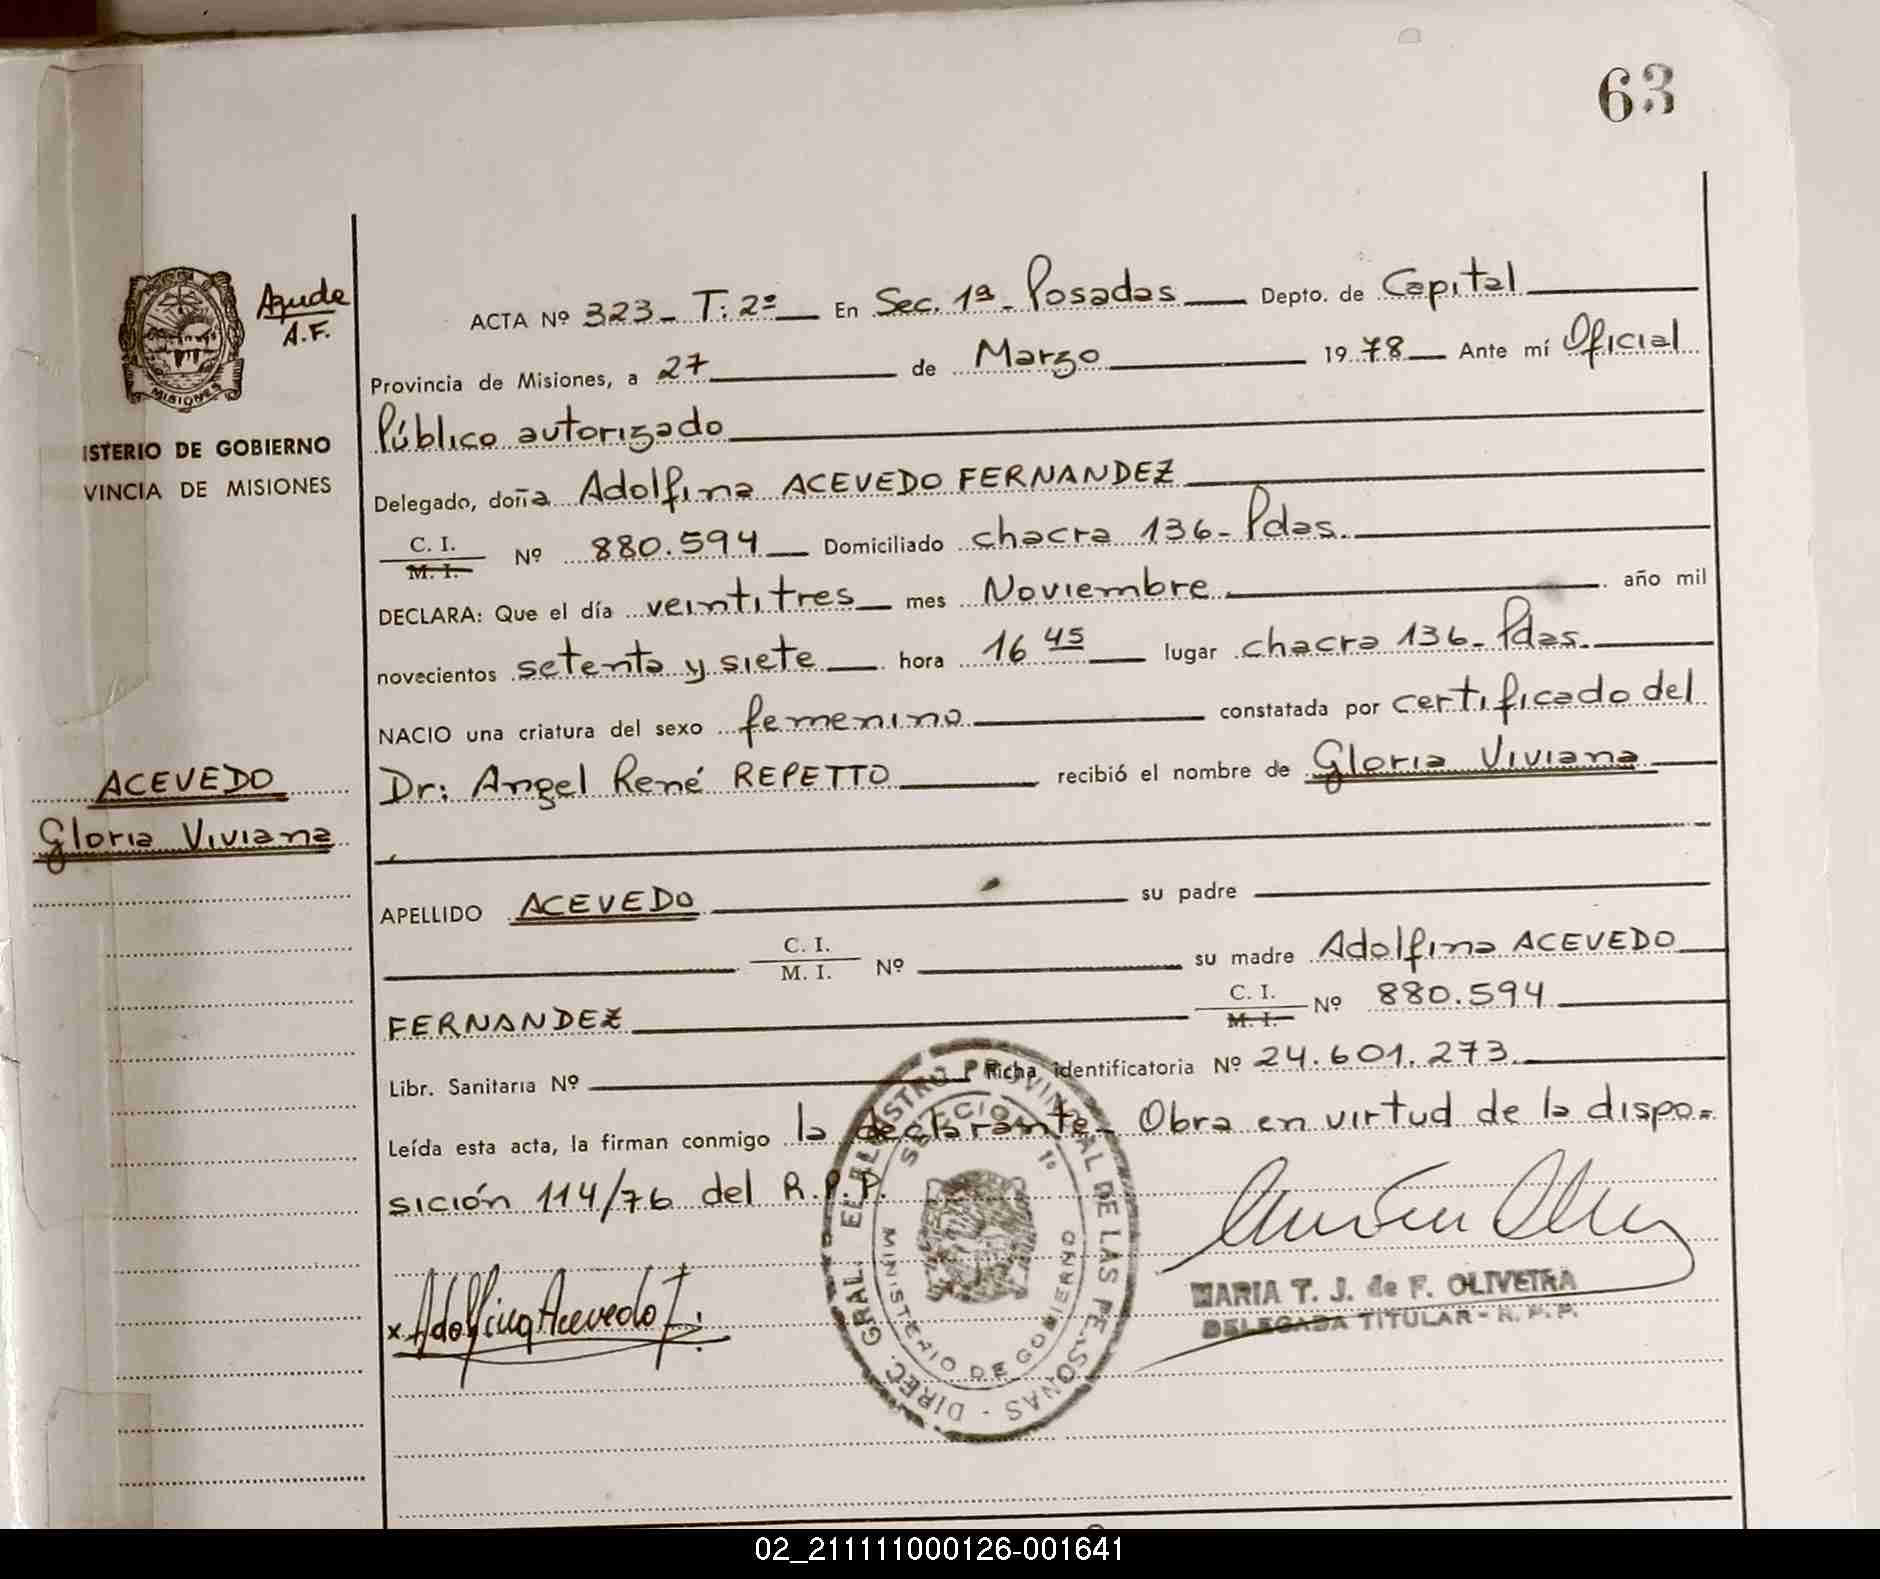 63
Ayude
A.F.
MISIONES
ISTERIO DE GOBIERNO
VINCIA DE MISIONES
ACTA Nº 323- T: 2º En Sec. 1ª - Posadas Depto. de Capital
Provincia de Misiones, a 27 de Marzo 1978 Ante mí Oficial
Público autorizado
Delegado, doña Adolfina ACEVEDO FERNANDEZ
C. I.
M. I. Nº 880.594 Domiciliado chacra 136- Pdas.
DECLARA: Que el día veintitres mes Noviembre año mil
novecientos setenta y siete hora 16 45 lugar chacra 136- Pdas.
NACIO una criatura del sexo femenino constatada por certificado del
Dr: Angel René REPETTO recibió el nombre de Gloria Viviana
ACEVEDO
Gloria Viviana
APELLIDO ACEVEDO su padre
C. I.
M. I. Nº su madre Adolfina ACEVEDO
FERNANDEZ C. I.
M. I. Nº 880.594
Libr. Sanitaria Nº Ficha identificatoria Nº 24.601.273
Leída esta acta, la firman conmigo la declarante- Obra en virtud de la dispo=
sición 114/76 del R.P.P.
x Adolfina Acevedo F.
DIREC. GRAL. DEL REGISTRO PROVINCIAL DE LAS PERSONAS -
SECCION 1º
MINISTERIO DE GOBIERNO
MARIA T. J. de F. OLIVEIRA
DELEGADA TITULAR - R. P. P.
02_211111000126-001641